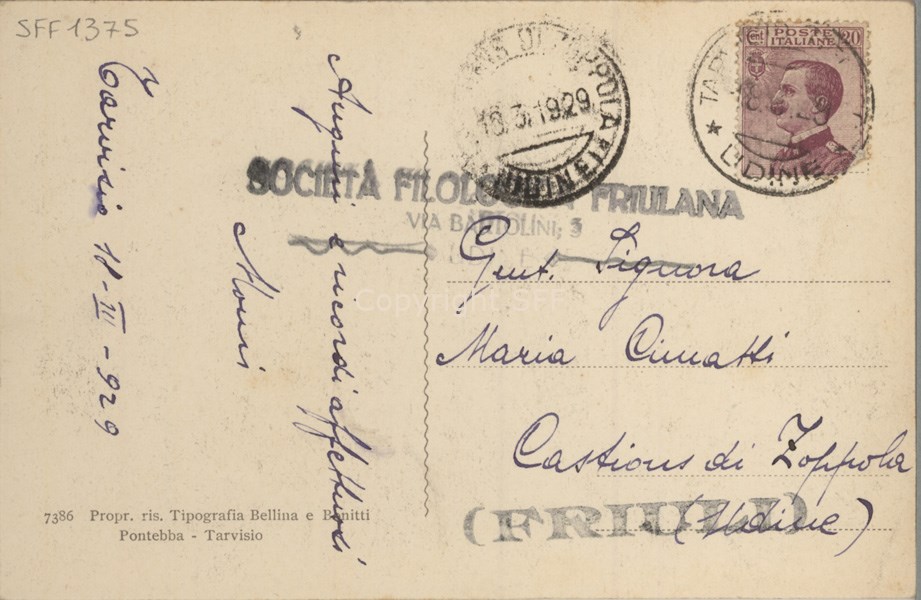 SFF1375
Tarvisio 18-III-929
Auguri e ricordi affettuosi
CASTIONS DI ZOPPOLA
18.3.1929
(UDINE)
POSTE ITALIANE
Cent 20
UDINE
SOCIETÀ FILOLOGICA FRIULANA
VIA BARTOLINI, 3
UDINE
Gent. Signora
Maria Cimatti
Castions di Zoppola
(Udine)
(FRIULI)
Copyright SFF
7386 Propr. ris. Tipografia Bellina e Bonitti
Pontebba - Tarvisio